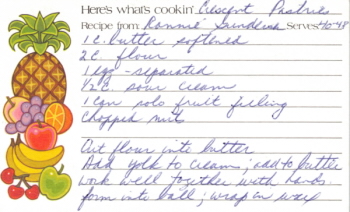 Here's what's cookin' Crescent Pastries
Recipe from: Ronnie Serves 40-48
1 C. butter softened
2 C. flour
1 egg - separated
1/2 C. sour cream
1 can solo fruit filling
Chopped nuts
Cut flour into butter
Add yolk to cream; add to butter
work well together with hands.
form into ball; wrap in wax